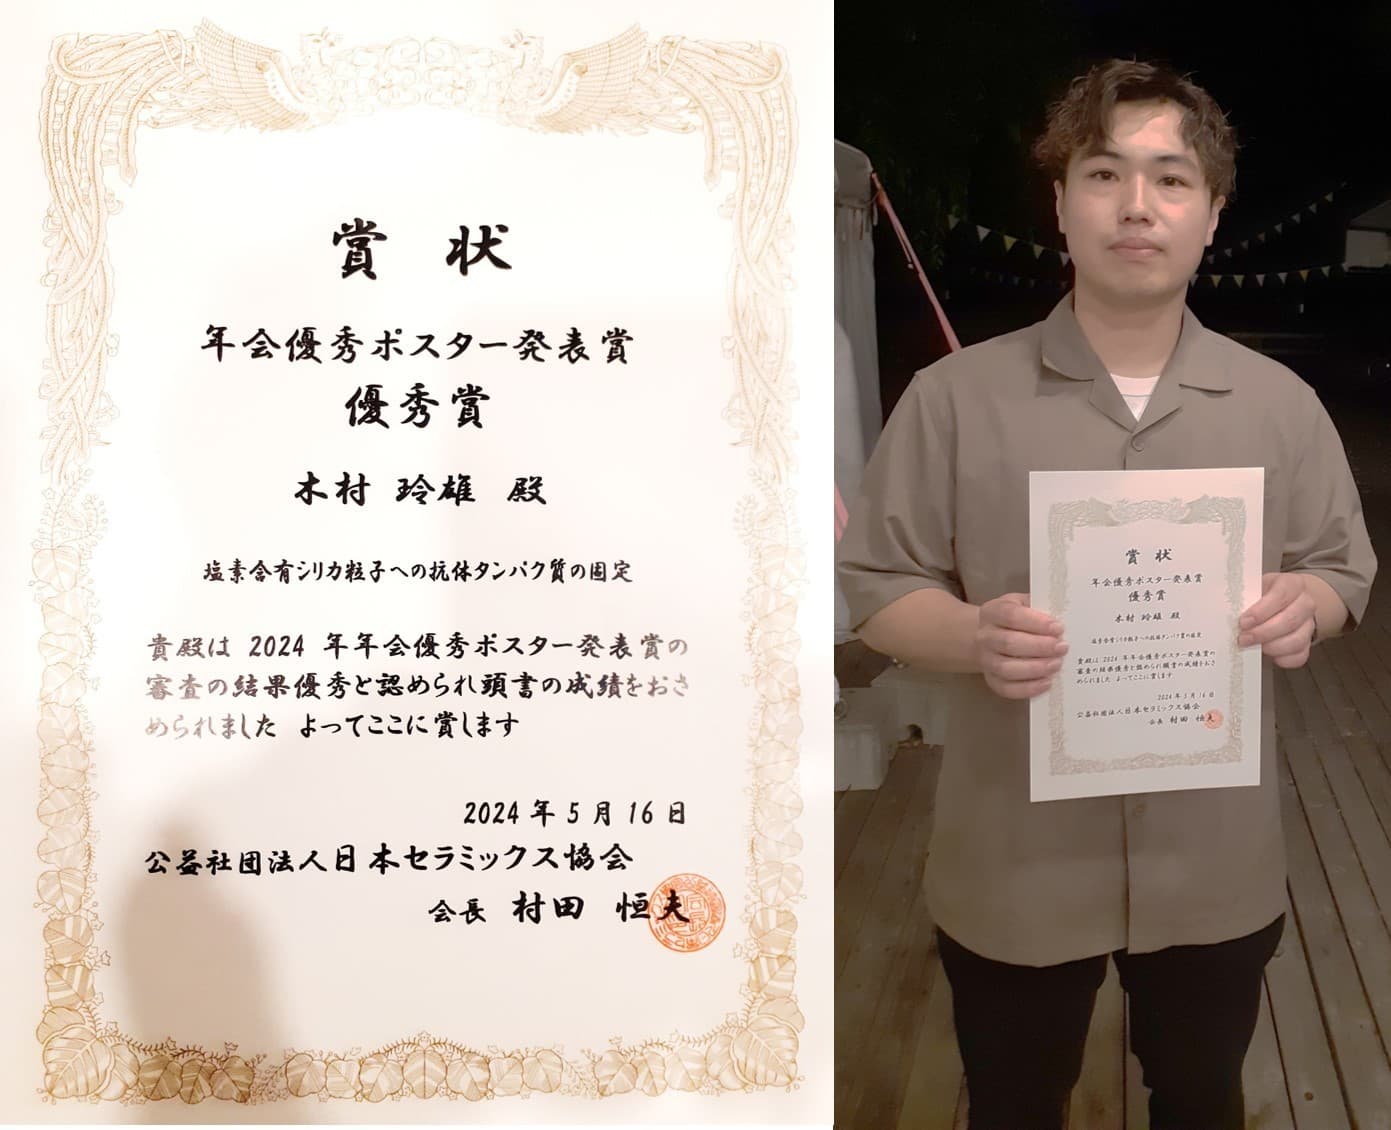 賞状
年会優秀ポスター発表賞
優秀賞
木村 玲雄 殿
塩素含有シリカ粒子への抗体タンパク質の固定
貴殿は 2024 年年会優秀ポスター発表賞の
審査の結果優秀と認められ頭書の成績をおさ
められました よってここに賞します
2024 年 5 月 16 日
公益社団法人日本セラミックス協会
会長 村田 恒夫
賞状
年会優秀ポスター発表賞
優秀賞
木村 玲雄 殿
塩素含有シリカ粒子への抗体タンパク質の固定
貴殿は 2024 年年会優秀ポスター発表賞の
審査の結果優秀と認められ頭書の成績をおさ
められました よってここに賞します
2024 年 5 月 16 日
公益社団法人日本セラミックス協会
会長 村田 恒夫